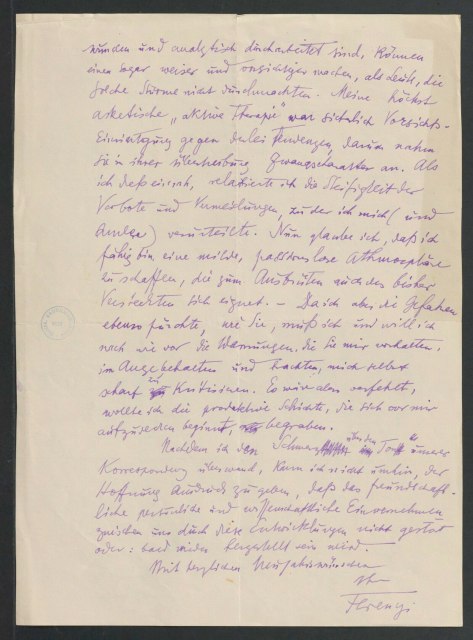 wunden und analytisch durcharbeitet sind, können
einen sogar weiser und vorsichtiger machen, als Leute, die
solche Stürme nicht durchmachten. Meine höchst
asketische „aktive Therapie" war sicherlich Vorsichts-
gegen derlei Tendenzen, darum nahm
sie in ihrer Übertreibung Zwangscharakter an. Als
ich das einsah, relaxierte ich die Steifigkeit der
Verbote und Vermeidungen, zu der ich mich (und
Andere) verurteilte. Nun glaube ich, daß ich
fähig bin eine milde, passionslose Athmosphäre
zu schaffen, die zum Ausbrüten auch des bisher
Versteckten sich eignet. – Da ich aber die Gefahren
ebenso fürchte, wie Sie, muß ich und will ich
nach wie vor die Warnungen, die Sie mir vorhalten,
im Auge behalten und trachten, mich selbst
scharf zu kritisieren. Es wäre aber verfehlt,
wollte ich die produktive Schichte, die sich vor mir
aufzudecken beginnt, begraben.
Nachdem ich den Schmerz über den Ton unserer
Korrespondenz überwand, kann ich nicht umhin, der
Hoffnung Ausdruck zu geben, daß das freundschaft-
liche persönliche und wissenschaftliche Einvernehmen
zwischen uns durch diese Entwicklungen nicht gestört
oder: bald wieder hergestellt sein wird.
Mit herzlichen Neujahrswünschen
Ihr
Ferenczi